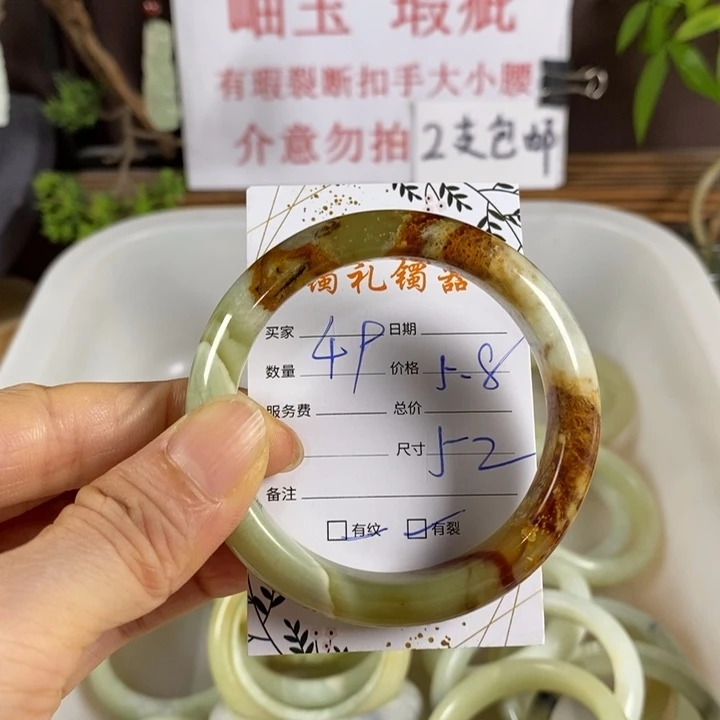 岫玉 瑕疵
有瑕裂断扣手大小腰
介意勿拍 2支包邮
镯礼镯器
买家 日期
数量 49 价格 5-8
服务费 总价
尺寸 52
备注
有纹 有裂